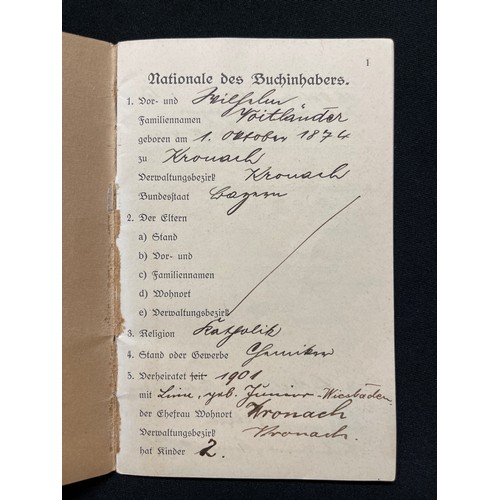 1
Nationale des Buchinhabers.
1. Vor- und Wilhelm
Familiennamen Voitländer
geboren am 1. Oktober 1874
zu Kronach
Verwaltungsbezirk Kronach
Bundesstaat Bayern
2. Der Eltern
a) Stand
b) Vor- und
c) Familiennamen
d) Wohnort
e) Verwaltungsbezirk
3. Religion Katholik
4. Stand oder Gewerbe Chemiker
5. Verheiratet seit 1901
mit Line, geb. Junior-Wiesbaden
der Ehefrau Wohnort Kronach
Verwaltungsbezirk Kronach.
hat Kinder 2.